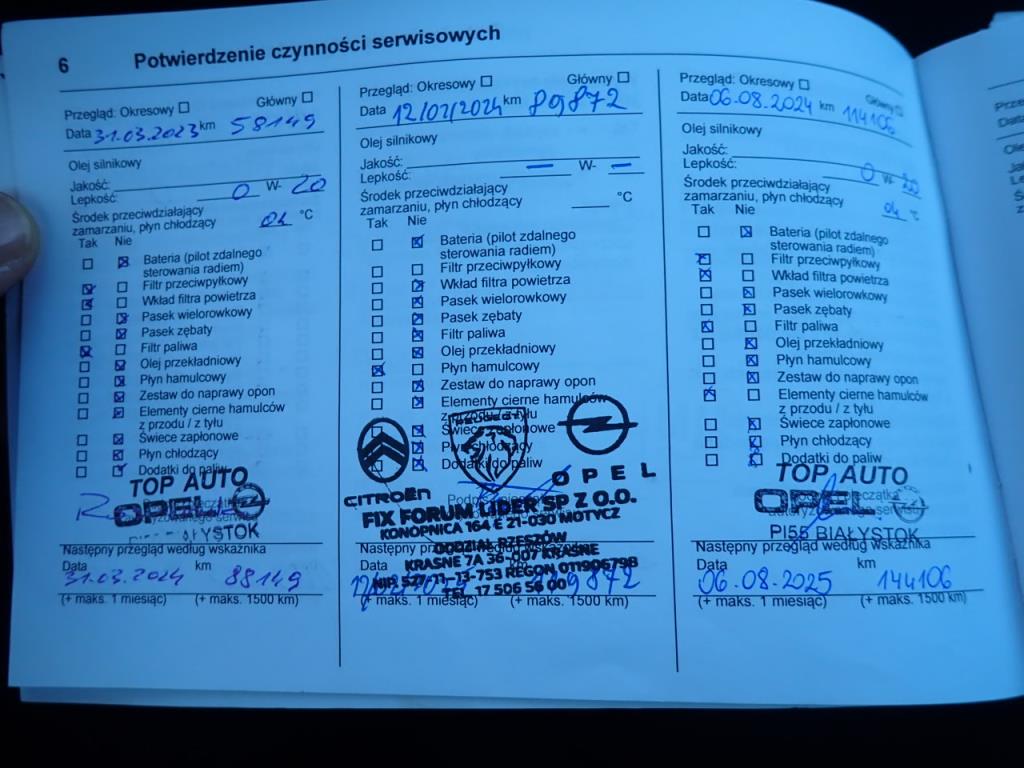 6 Potwierdzenie czynności serwisowych
Przegląd: Okresowy Główny
Data 31.03.2023 km 58149
Olej silnikowy
Jakość:
Lepkość: 0 W- 20
Środek przeciwdziałający
zamarzaniu, płyn chłodzący °C
Tak Nie
Bateria (pilot zdalnego
sterowania radiem)
Filtr przeciwpyłkowy
Wkład filtra powietrza
Pasek wielorowkowy
Pasek zębaty
Filtr paliwa
Olej przekładniowy
Płyn hamulcowy
Zestaw do naprawy opon
Elementy cierne hamulców
z przodu / z tyłu
Świece zapłonowe
Płyn chłodzący
Dodatki do paliw
TOP AUTO
OPEL
BIAŁYSTOK
Następny przegląd według wskaźnika
Data km
31.03.2024 88149
(+ maks. 1 miesiąc) (+ maks. 1500 km)
Przegląd: Okresowy Główny
Data 12/02/2024 km 89872
Olej silnikowy
Jakość:
Lepkość: — W- —
Środek przeciwdziałający
zamarzaniu, płyn chłodzący °C
Tak Nie
Bateria (pilot zdalnego
sterowania radiem)
Filtr przeciwpyłkowy
Wkład filtra powietrza
Pasek wielorowkowy
Pasek zębaty
Filtr paliwa
Olej przekładniowy
Płyn hamulcowy
Zestaw do naprawy opon
Elementy cierne hamulców
z przodu / z tyłu
Świece zapłonowe
Płyn chłodzący
Dodatki do paliw
CITROËN PEUGEOT OPEL
FIX FORUM LIDER SP Z O.O.
KONOPNICA 164 E 21-030 MOTYCZ
ODDZIAŁ RZESZÓW
KRASNE 7A 36-007 KRASNE
NIP 527-11-73-753 REGON 011906798
TEL. 17 506 56 00
Następny przegląd według wskaźnika
Data km
(+ maks. 1 miesiąc) (+ maks. 1500 km)
Przegląd: Okresowy Główny
Data 06.08.2024 km 114106
Olej silnikowy
Jakość:
Lepkość: 0 W- 20
Środek przeciwdziałający
zamarzaniu, płyn chłodzący °C
Tak Nie
Bateria (pilot zdalnego
sterowania radiem)
Filtr przeciwpyłkowy
Wkład filtra powietrza
Pasek wielorowkowy
Pasek zębaty
Filtr paliwa
Olej przekładniowy
Płyn hamulcowy
Zestaw do naprawy opon
Elementy cierne hamulców
z przodu / z tyłu
Świece zapłonowe
Płyn chłodzący
Dodatki do paliw
TOP AUTO
OPEL
PI55 BIAŁYSTOK
Następny przegląd według wskaźnika
Data km
06.08.2025 144106
(+ maks. 1 miesiąc) (+ maks. 1500 km)